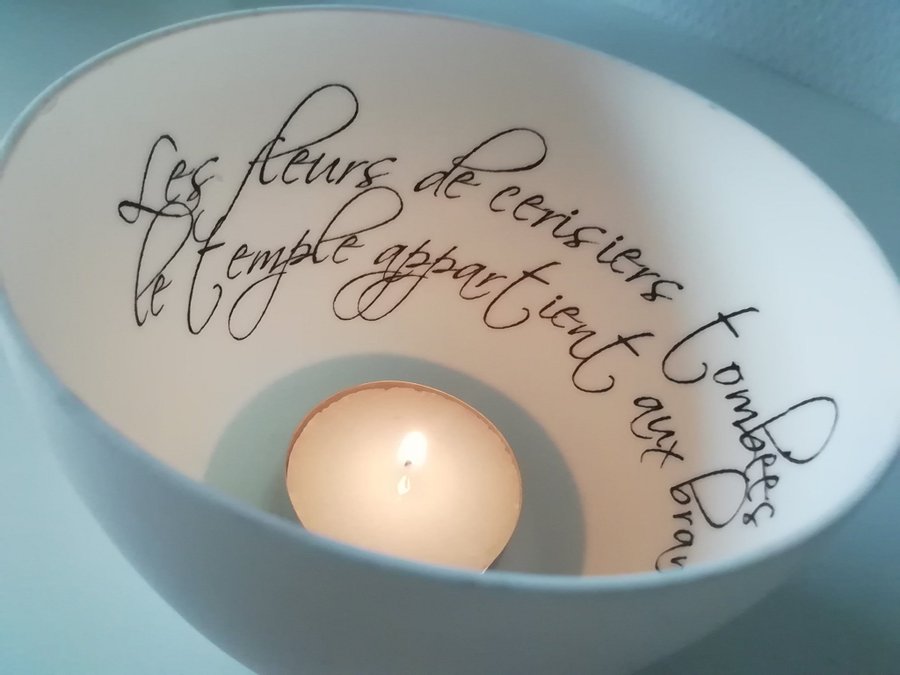 Les fleurs de cerisiers tombées
le temple appartient aux